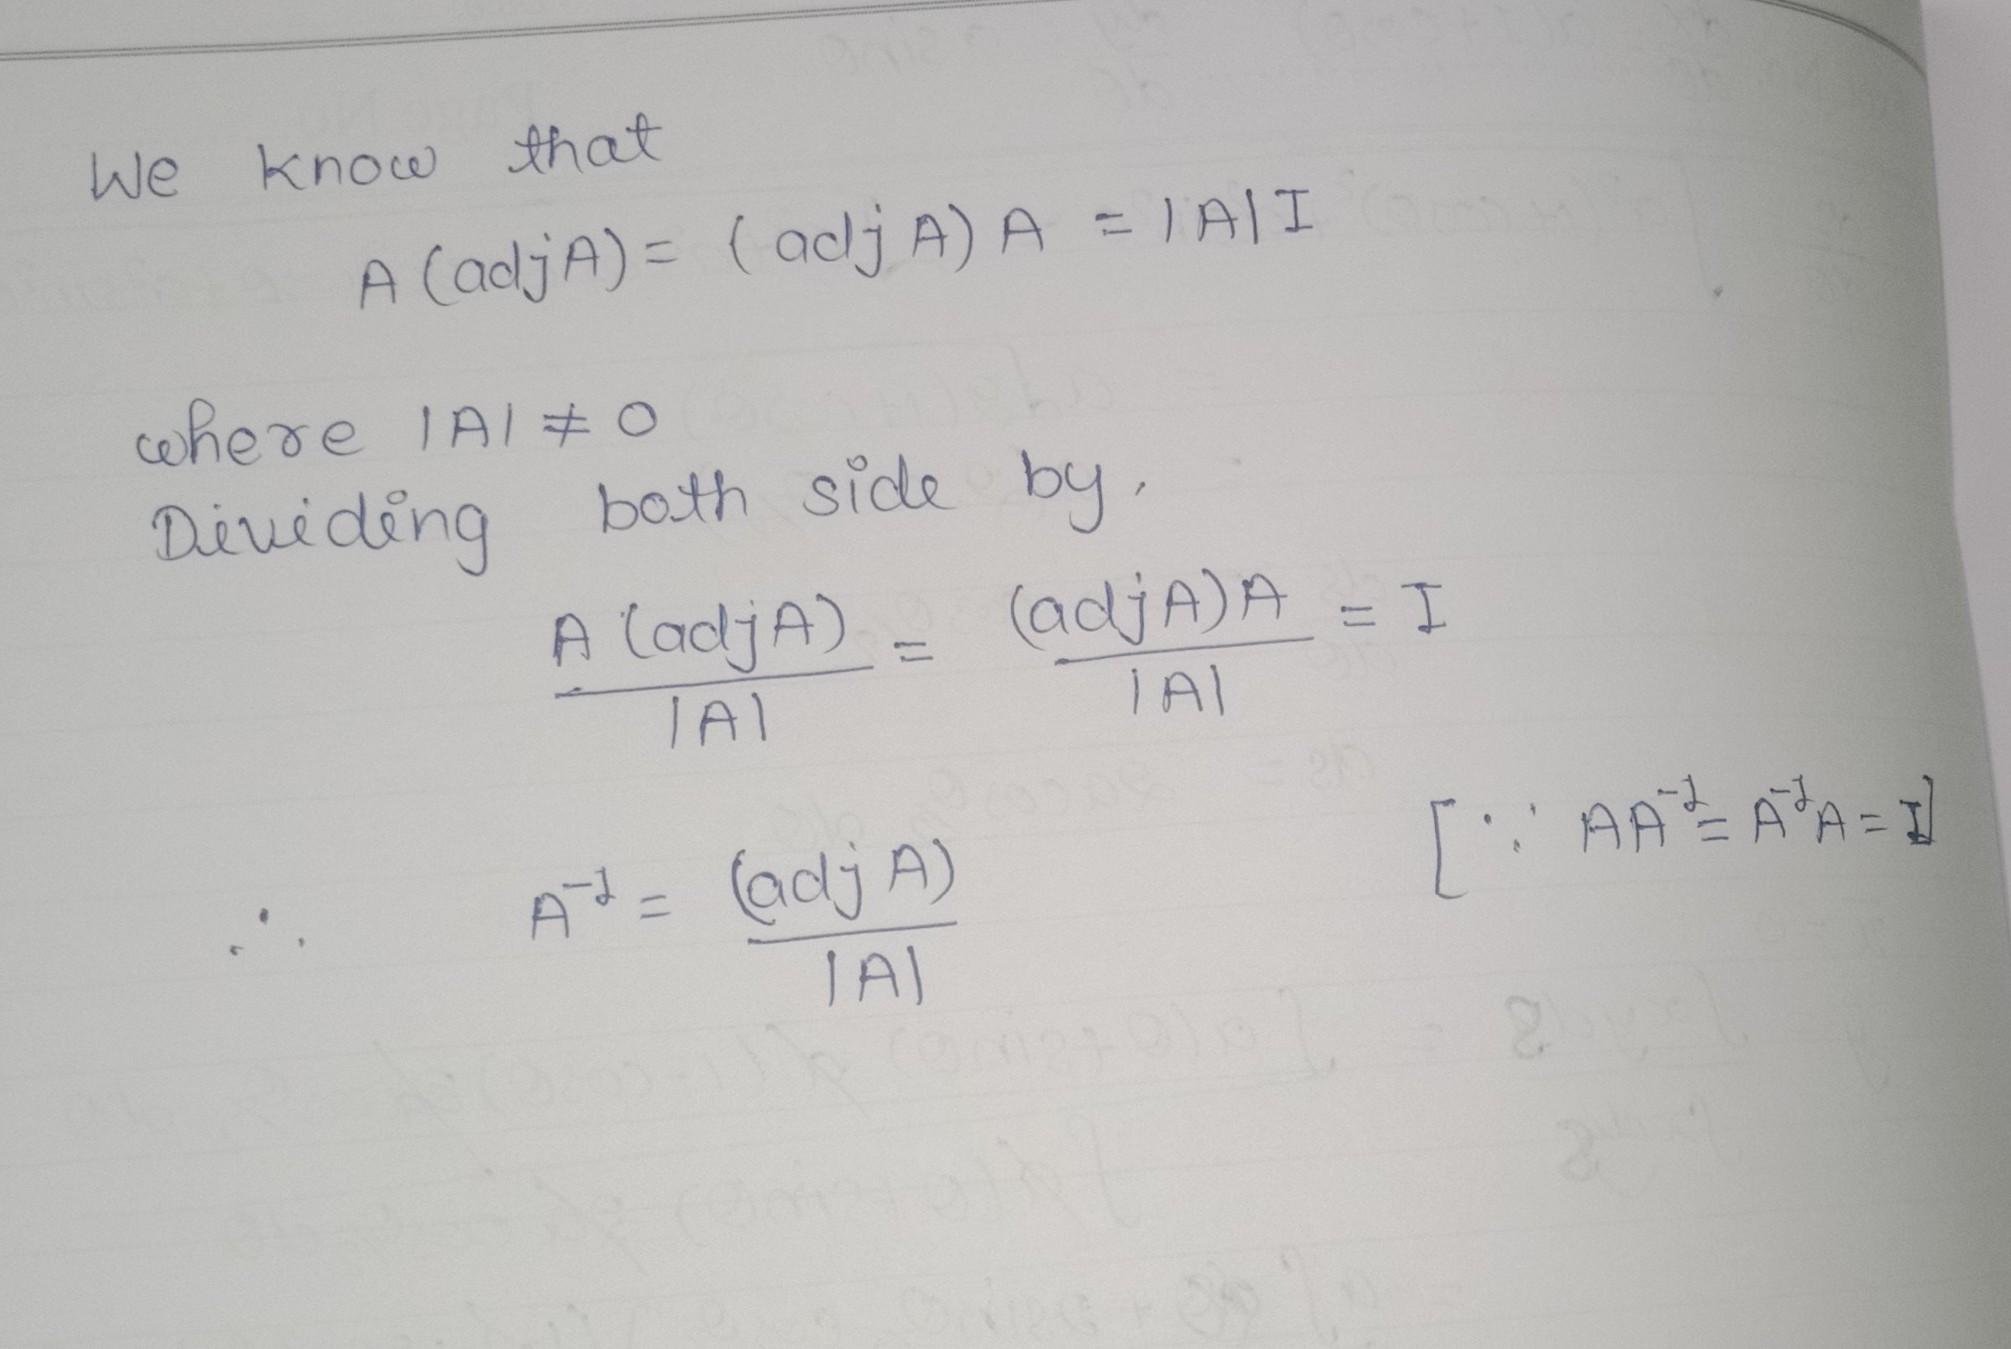 We know that
A (adj A) = (adj A) A = |A| I
where |A| ≠ 0
Dividing both side by,
A (adj A) / |A| = (adj A) A / |A| = I
[∵ AA⁻¹ = A⁻¹A = I]
∴ A⁻¹ = (adj A) / |A|